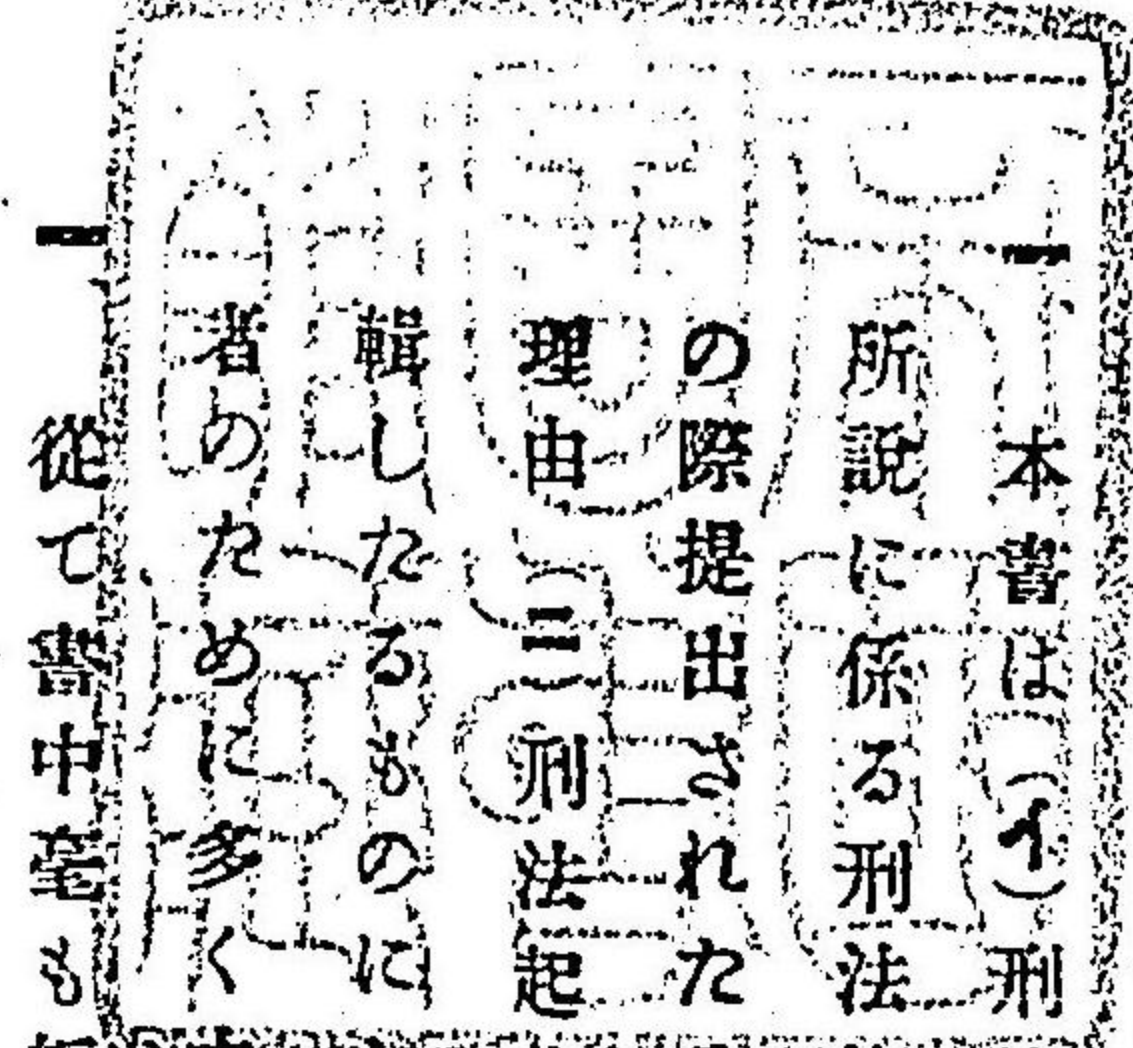 一　本書は(イ)刑
所說に係る刑法
の際提出された
理由(二)刑法起
輯したるものに
者のために多く
一　從て書中毫も